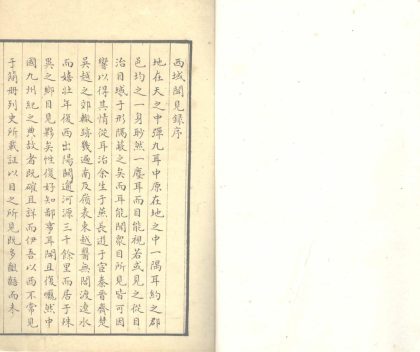 西域聞見錄序
地在天之中彈丸耳中原在地之中一隅耳約之郡
邑均之一身眇然一塵耳而目能視若或見之從目
治目域于形隔蔽之矣而耳能聞眾目所見皆可因
響以得其情從耳治余生于燕長遊于宦秦晉齊楚
吳越之郊轍跡幾遍南及嶺表東越醫無閭渡遼水
而嬉壯年後西出陽關遡河源三千餘里而居于殊
異之鄉目見夥矣性復好知鄙事耳聞且復囑然中
國九州紀之典故者既確且詳而伊吾以西不常見
于簡冊列史所載証以目之所見既多齟齬而未